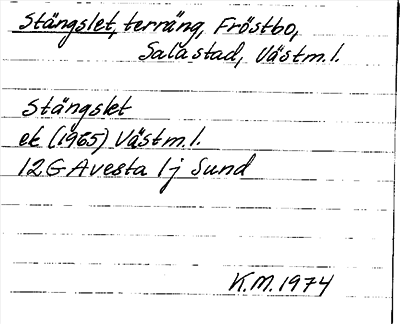 Stängslet, terräng, Fröstbo,
Sala stad, Västm.l.
Stängslet
ek (1965) Västm.l.
12G Avesta 1j Sund
K.M. 1974